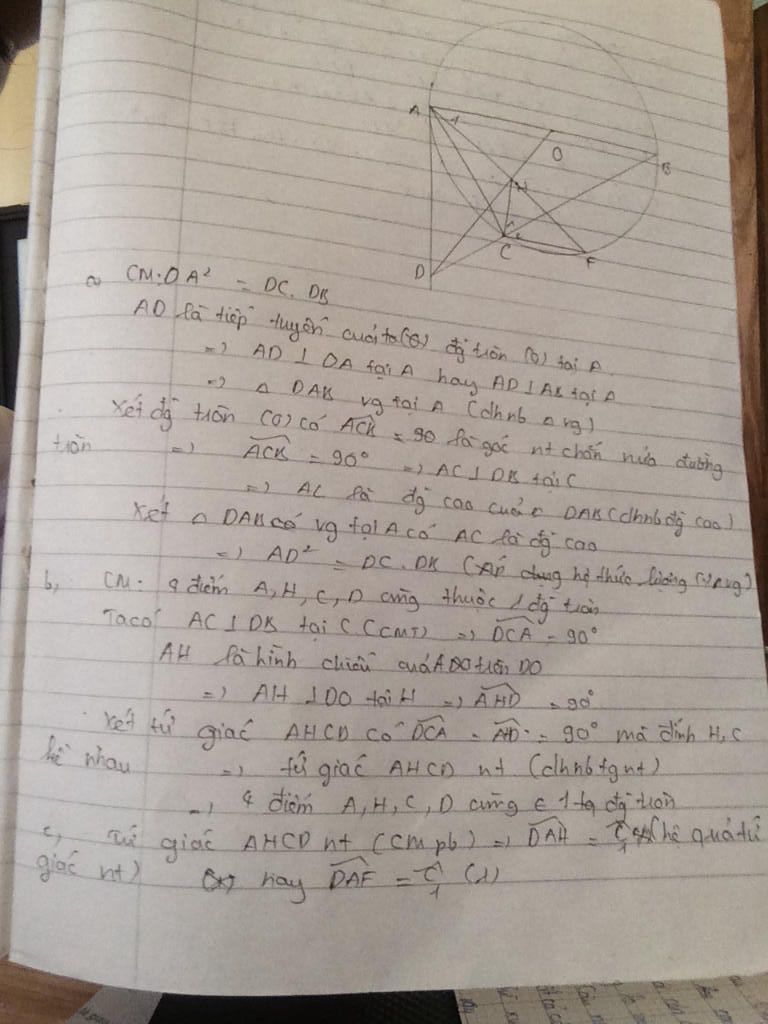 A
1
O
B
H
1
2
C
F
D
a, CM: DA² = DC. DB
AD là tiếp tuyến của (O) đg tròn (O) tại A
=) AD ⊥ OA tại A hay AD ⊥ AB tại A
=) △ DAB vg tại A (dhnb △ vg)
Xét đg tròn (O) có ACB = 90 là góc nt chắn nửa đường
tròn =) ACB = 90° =) AC ⊥ DB tại C
=) AC là đg cao của △ DAB (dhnb đg cao)
Xét △ DAB có vg tại A có AC là đg cao
=) AD² = DC. DB (Áp dụng hệ thức lượng △ vg)
b, CM: 4 điểm A, H, C, D cùng thuộc 1 đg tròn
Ta có AC ⊥ DB tại C (CMT) =) DCA = 90°
AH là hình chiếu của A trên DO
=) AH ⊥ DO tại H =) AHD = 90°
Xét tứ giác AHCD có DCA = AHD = 90° mà đỉnh H, C
kề nhau =) tứ giác AHCD nt (dhnb tgnt)
=) 4 điểm A, H, C, D cùng ∈ 1 đg tròn
c, tứ giác AHCD nt (CM pb) =) DAH = C1 (hệ quả tứ
giác nt) hay DAF = C1 (1)